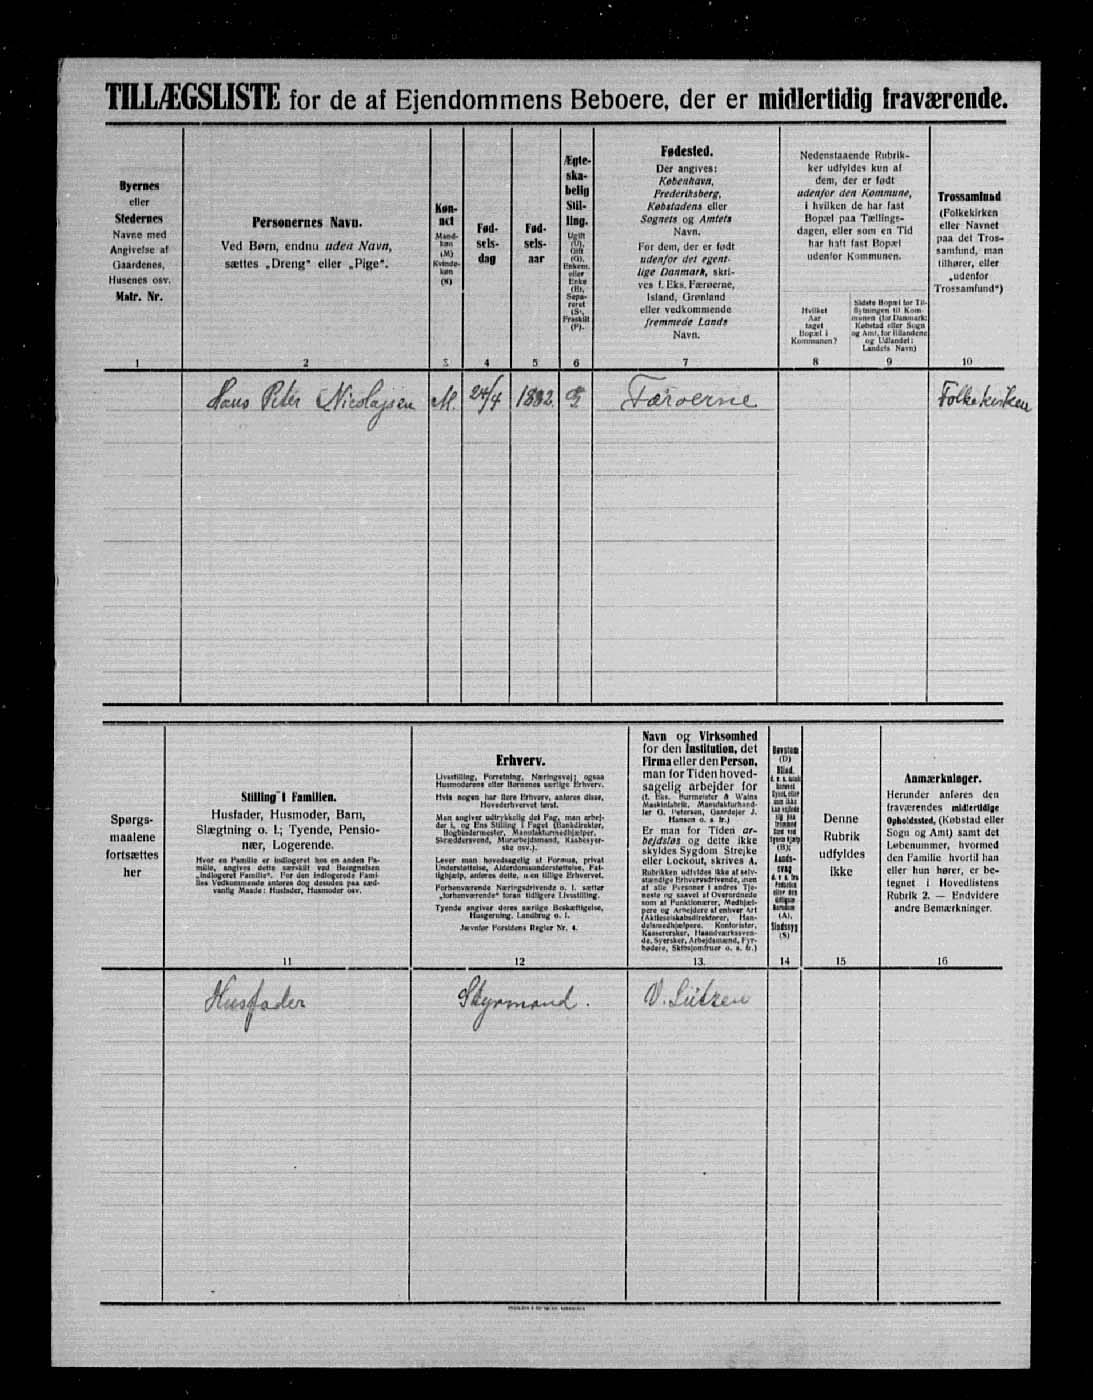 TILLÆGSLISTE for de af Ejendommens Beboere, der er midlertidig fraværende.
Byernes
eller
Stedernes
Navne med
Angivelse af
Gaardenes,
Husenes osv.
Matr. Nr.
1
Personernes Navn.
Ved Børn, endnu uden Navn,
sættes „Dreng" eller „Pige".
2
Køn-
net
Mand-
køn
(M)
Kvinde-
køn
(K)
3
Fød-
sels-
dag
4
Fød-
sels-
aar
5
Ægte-
ska-
belig
Stil-
ling.
Ugift
(U),
Gift
(G),
Enkem.
eller
Enke
(E),
Sepa-
reret
(S),
Fraskilt
(F).
6
Fødested.
Der angives:
København,
Frederiksberg,
Købstadens eller
Sognets og Amtets
Navn.
For dem, der er født
udenfor det egent-
lige Danmark, skri-
ves f. Eks. Færøerne,
Island, Grønland
eller vedkommende
fremmede Lands
Navn.
7
Nedenstaaende Rubrik-
ker udfyldes kun af
dem, der er født
udenfor den Kommune,
i hvilken de har fast
Bopæl paa Tællings-
dagen, eller som en Tid
har haft fast Bopæl
udenfor Kommunen.
Hvilket
Aar
taget
Bopæl i
Kommunen?
8
Sidste Bopæl før Til-
flytningen til Kom-
munen (for Danmark:
Købstad eller Sogn
og Amt, for Bilandene
og Udlandet:
Landets Navn)
9
Trossamfund
(Folkekirken
eller Navnet
paa det Tros-
samfund, man
tilhører, eller
„udenfor
Trossamfund")
10
Hans Peter Nicolajsen M. 24/4 1882. G Færøerne Folkekirken
Spørgs-
maalene
fortsættes
her
Stilling i Familien.
Husfader, Husmoder, Barn,
Slægtning o. l.; Tyende, Pensio-
nær, Logerende.
Hvor en Familie er indlogeret hos en anden Fa-
milie, angives dette særskilt ved Betegnelsen
„Indlogeret Familie". For den indlogerede Fami-
lies Vedkommende anføres dog desuden paa sæd-
vanlig Maade: Husfader, Husmoder osv.
11
Erhverv.
Livsstilling, Forretning, Næringsvej; ogsaa
Husmoderens eller Børnenes særlige Erhverv.
Hvis nogen har flere Erhverv, anføres disse,
Hovederhvervet først.
Man angiver udtrykkelig det Fag, man arbej-
der i, og Ens Stilling i Faget (Bankdirektør,
Bogbindermester, Manufakturmedhjælper,
Skræddersvend, Murarbejdsmand, Kaabesyer-
ske osv.).
Lever man hovedsagelig af Formue, privat
Understøttelse, Alderdomsunderstøttelse, Fat-
tighjælp, anføres dette, men tillige Erhvervet.
Forhenværende Næringsdrivende o. l. sætter
„forhenværende" foran tidligere Livsstilling.
Tyende angiver deres særlige Beskæftigelse,
Husgerning, Landbrug o. l.
Jævnfør Forsidens Regler Nr. 4.
12
Navn og Virksomhed
for den Institution, det
Firma eller den Person,
man for Tiden hoved-
sagelig arbejder for
(f. Eks. Burmeister & Wains
Maskinfabrik, Manufakturhand-
ler G. Petersen, Gaardejer J.
Hansen o. s. fr.)
Er man for Tiden ar-
bejdsløs og dette ikke
skyldes Sygdom Strejke
eller Lockout, skrives A.
Rubrikken udfyldes ikke af selv-
stændige Erhvervsdrivende, men
af alle Personer i andres Tje-
neste og saavel af Overordnede
som af Funktionærer, Medhjæl-
pere og Arbejdere af enhver Art
(Aktieselskabsdirektører, Han-
delsmedhjælpere, Kontorister,
Kasserersker, Haandværkssven-
de, Syersker, Arbejdsmænd, Fyr-
bødere, Skibsjomfruer o. s. fr.)
13.
Døvstum
(D)
Blind,
(B);
Aands-
svag
(A),
Sindssyg
(S)
14
Denne
Rubrik
udfyldes
ikke
15
Anmærkninger.
Herunder anføres den
fraværendes midlertidige
Opholdssted, (Købstad eller
Sogn og Amt) samt det
Løbenummer, hvormed
den Familie hvortil han
eller hun hører, er be-
tegnet i Hovedlistens
Rubrik 2. — Endvidere
andre Bemærkninger.
16
Husfader Styrmand. V. Lützen